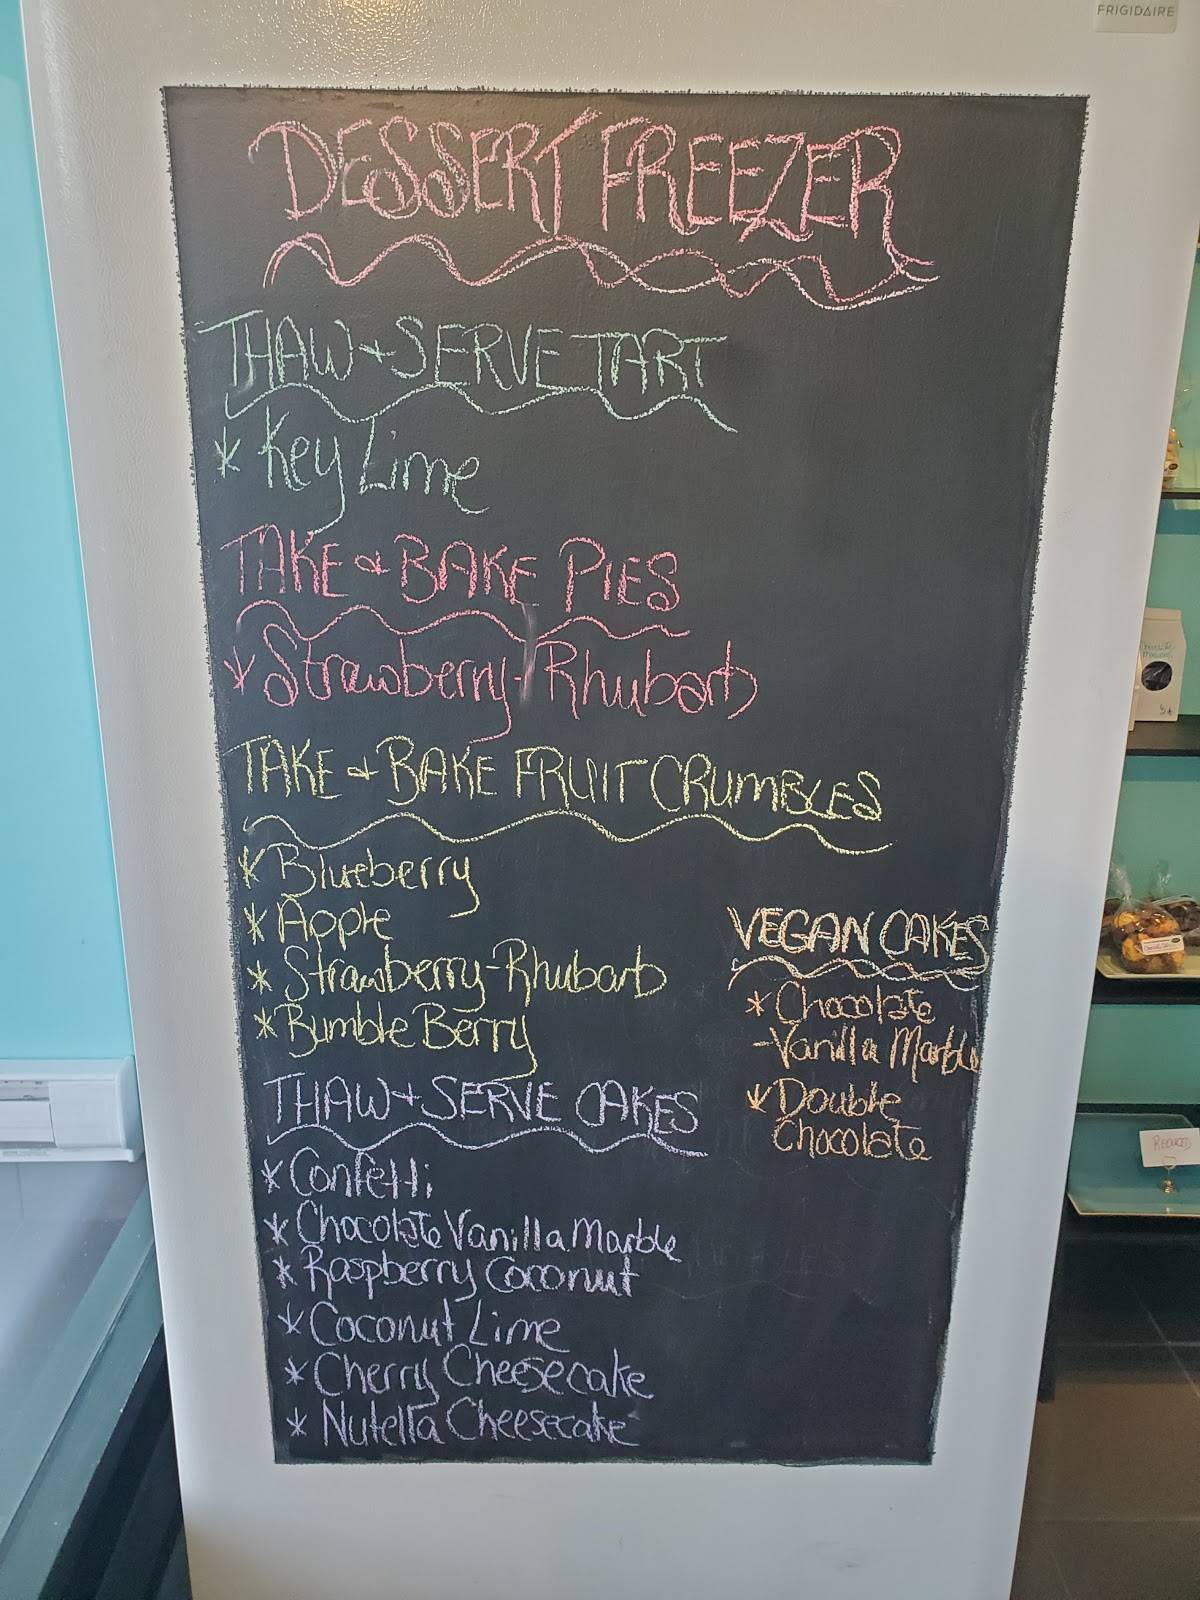 FRIGIDAIRE
DESSERT FREEZER
THAW + SERVE TART
* Key Lime
TAKE & BAKE PIES
* Strawberry-Rhubarb
TAKE & BAKE FRUIT CRUMBLES
* Blueberry
* Apple
* Strawberry-Rhubarb
* Bumble Berry
THAW + SERVE CAKES
* Confetti
* Chocolate Vanilla Marble
* Raspberry Coconut
* Coconut Lime
* Cherry Cheesecake
* Nutella Cheesecake
VEGAN CAKES
* Chocolate
-Vanilla Marble
* Double
Chocolate
REDUCED